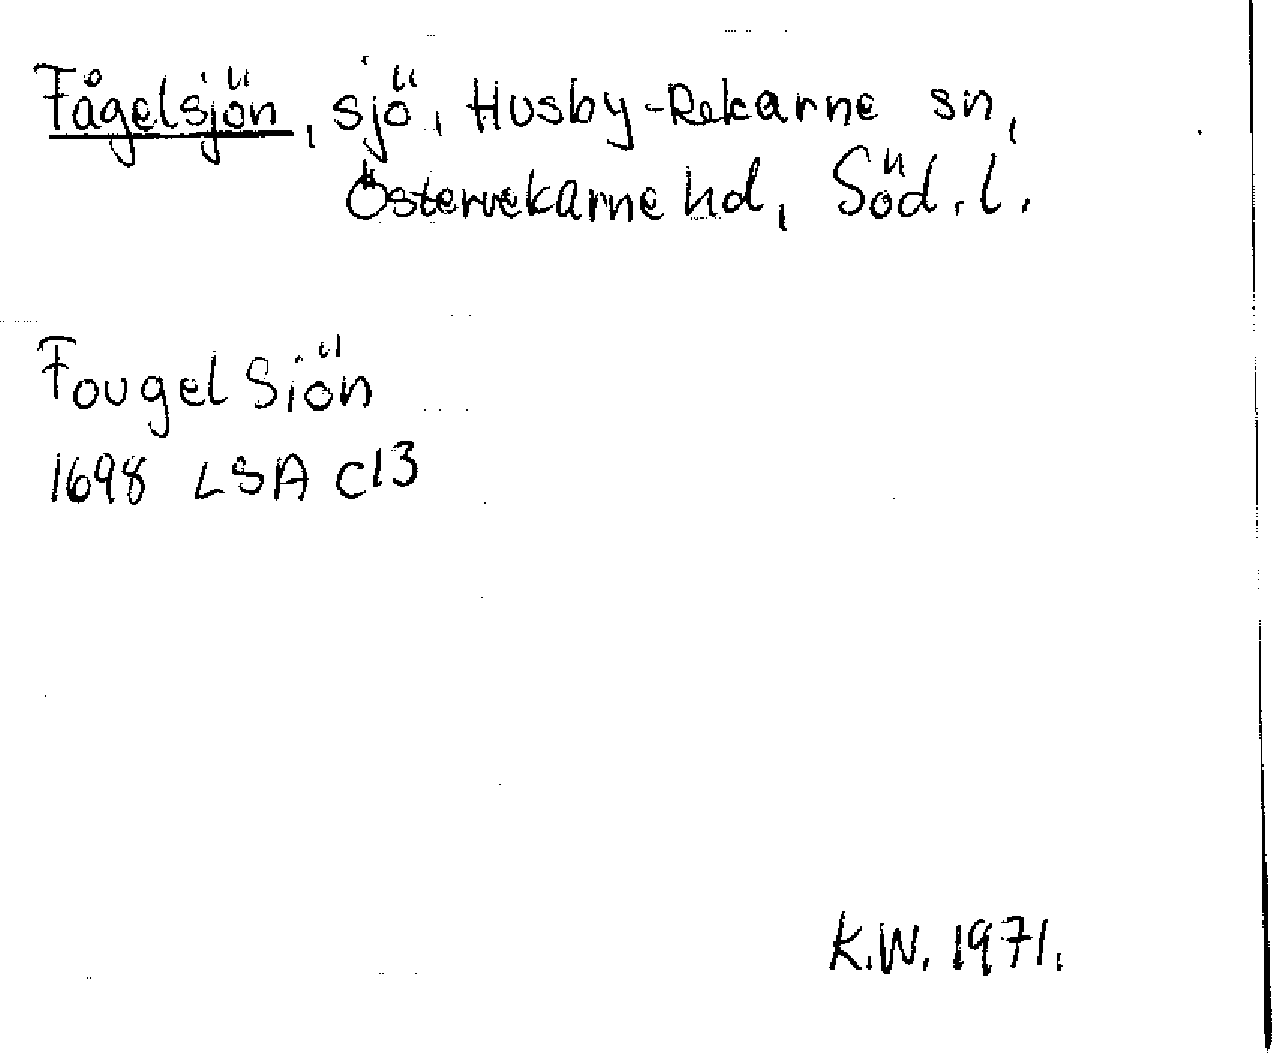 Fågelsjön, sjö, Husby-Rekarne sn,
Österrekarne hd, Söd. l.
Fougel Siön
1698 LSA C13
K.W. 1971.